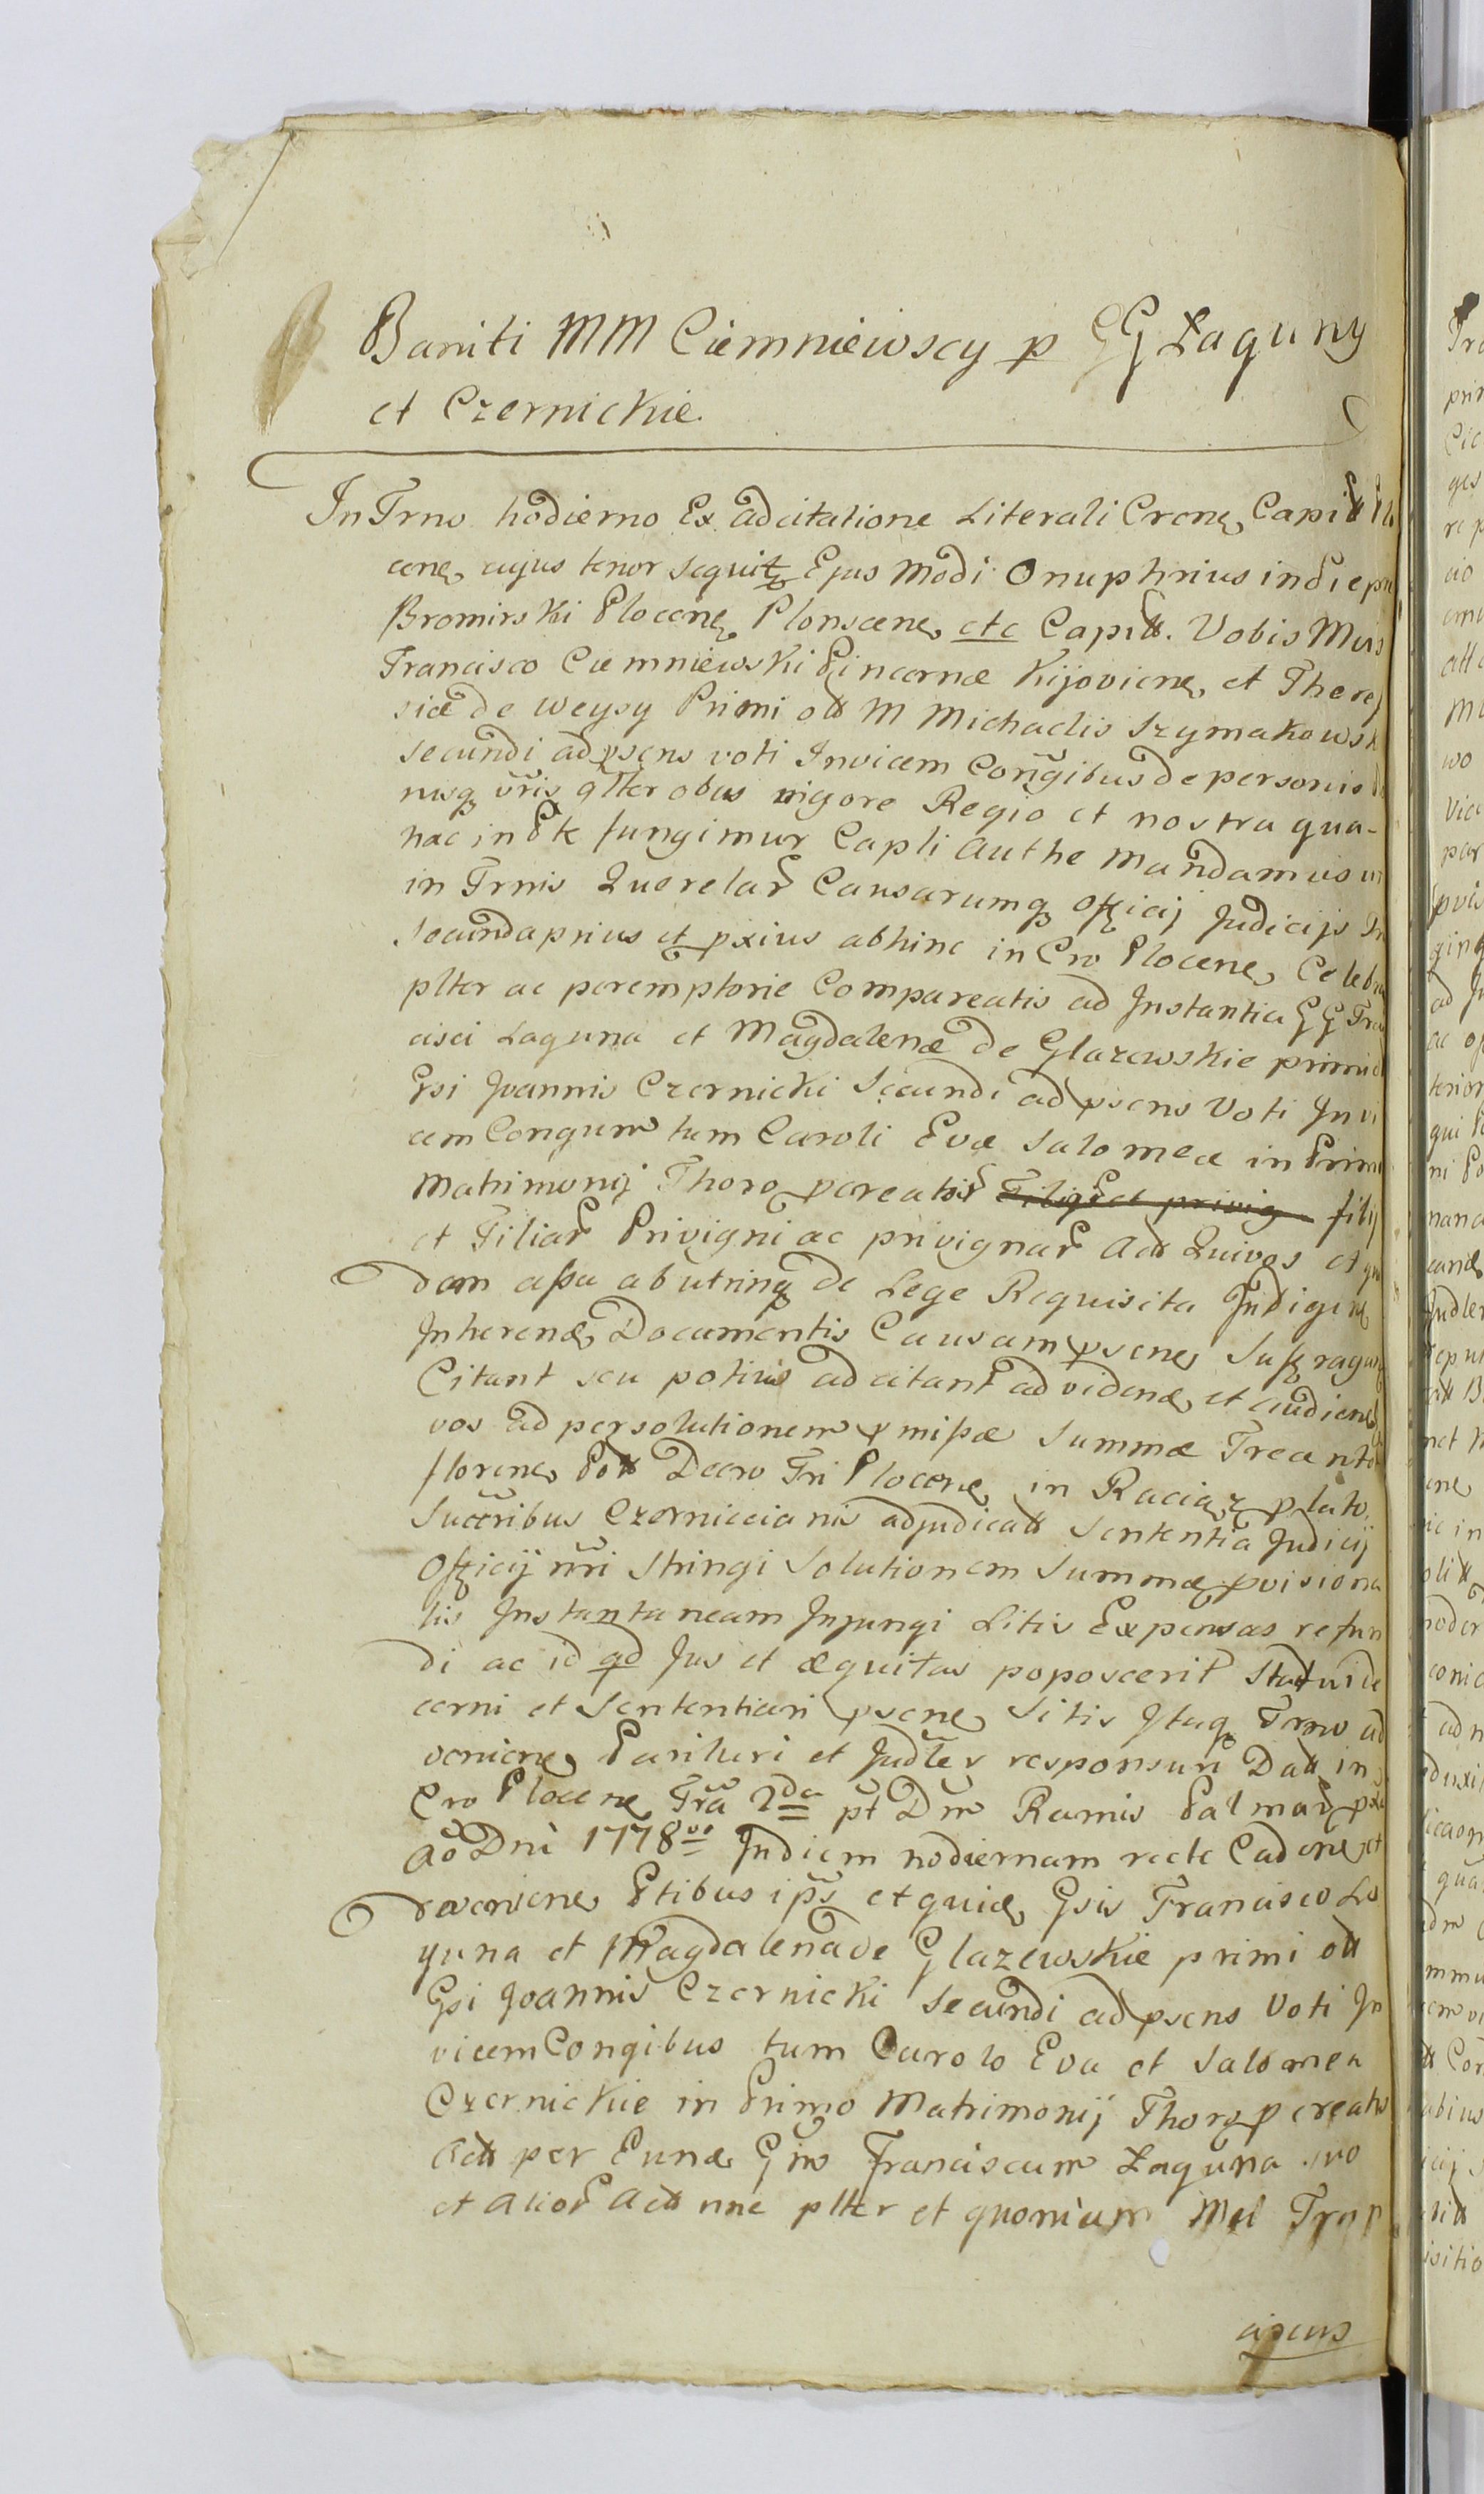 Baniti MM Ciemniewscy p GG Łaguny
et Czernickie.
In Trno hodierno Ex adcitatione Literali Crene, Capitt
cene, cujus tenor sequitz Ejus Modi Onuphrius in
Bromirski Plocene, Plonscene, etc Capitt. Vobis
Francisco Ciemniewski Pincernæ Kijoviene, et There
siæ de Weysy Primi ott M Michaelis Szymakowsk
secundi ad psens voti Invicem Congibus de personis
nisq vris qlter obus vigore Regio et nostra qua-
hac in Pte fungimur Capli Authe Mandamus
in Trnis Querelar Causarumq Officij Judicijs
Secunda prius et pxius abhinc in Cro Plocene, Celebr
plter ac peremptorie Compareatis ad Instantia GG
cisci Laguna et Magdalenæ de Glazewskie primi
Gsi Joannis Czernicki Secundi ad psens Voti Invi
cem Congum tum Caroli Evæ Salomeæ in Primi
Matrimonij Thoro pcreator filij
et Filiar Privigni ac privignar Act Qui vos et
dem assa ab utrinq de Lege Requisita Indigene
Inherene, Documentis Causam psene, Suffragan
Citant seu potius adcitant ad videne, et audiene,
vos ad persolutionem pmissæ Summæ Trecento
florene, Poll Decro Tri Plocene, in Raciąz plato,
Succribus Czerniccianis adjudicatt Sententia Judicij
Officij nri Stringi Solutionem Summæ pvisiona
lis Instantaneam Injungi Litis Expensas refun
di ac id qd Jus et æquitas poposcerit Statui de
cerni et Sententiari psene, Sitis Itaq Trno ad
veniene, Parituri et Judler responsuri Datt in
Cro Plocene, Fria 2da pt Dm Ramis Palmar
Ao Dni 1778vo In diem hodiernam recte Cadene, et
deveniene, Ptibus ipis et quidæ, Gsis Francisco La
guna et Magdalena de Glazewskie primi ott
Gsi Joannis Czernicki Secundi ad psens Voti In
vicem Congibus tum Carolo Eva et Salomea
Czernickie in Primo Matrimonij Thoro pcreatis
Actt per Eundæ Gm Franciscum Łaguna suo
et alior Actt nne plter et quoniam Mel
ciscus